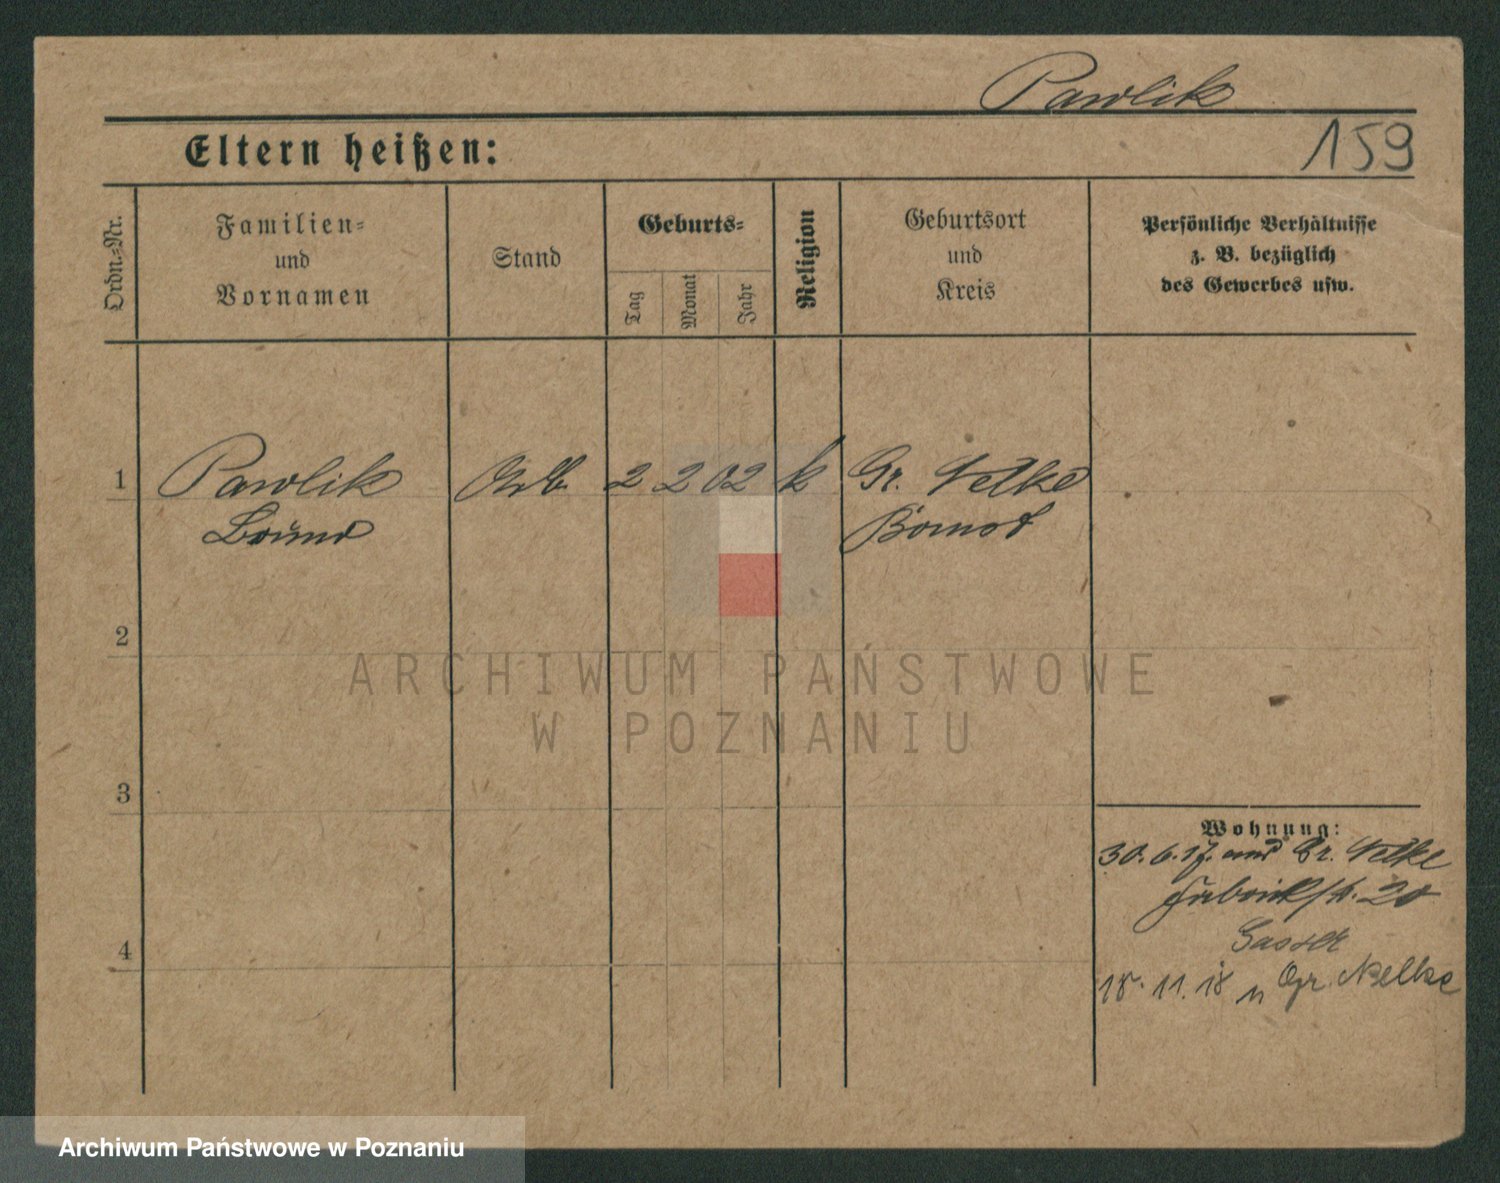 Pawlik
Eltern heißen:
159
Ordn.-Nr.
Familien-
und
Vornamen
Stand
Geburts-
Tag
Monat
Jahr
Religion
Geburtsort
und
Kreis
Persönliche Verhältnisse
z. B. bezüglich
des Gewerbes usw.
1
Pawlik
Arb.
2
2
02
k
Gr. Nelke
Bomst
2
ARCHIWUM PAŃSTWOWE
W POZNANIU
3
Wohnung:
30. 6. 17. Gr. Nelke
20
4
18. 11. 18 n Gr. Nelke
Archiwum Państwowe w Poznaniu